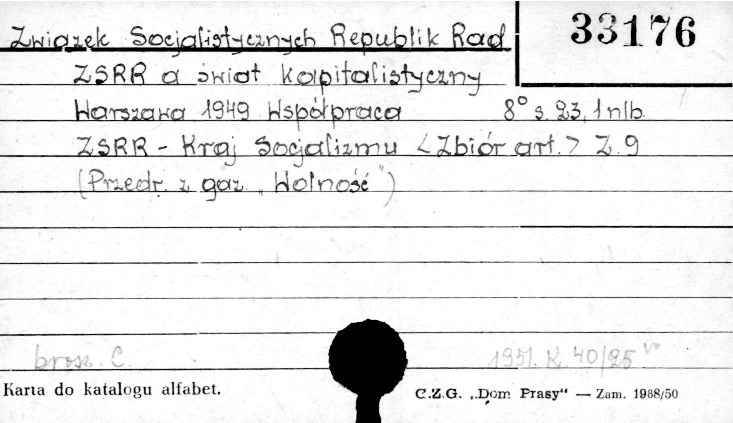 33176
Związek Socjalistycznych Republik Rad
ZSRR a świat kapitalistyczny
Warszawa 1949 Współpraca 8° s. 23, 1 nlb.
ZSRR - Kraj Socjalizmu <Zbiór art.> Z. 9
(Przedr. z gaz. „Wolność")
brosz. C. 1951. K 40/25
Karta do katalogu alfabet. C.Z.G. „Dom Prasy" — Zam. 1988/50